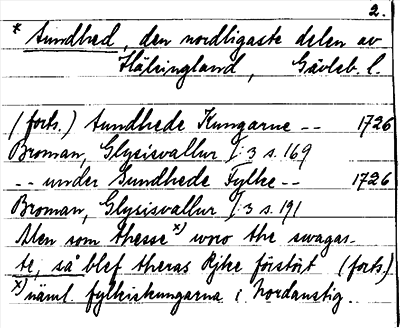 2.
* Sundhed, den nordligaste delen av
Hälsingland, Gävleb. l.
(forts.) Sundhede Kungarne -- 1726
Broman, Glysisvallur I: 3 s. 169
-- under Sundhede Fylke -- 1726
Broman, Glysisvallur I: 3 s. 191
Men som thesse x) woro the swagas-
te, så blef theras Rjke förstört (forts.)
x) näml. fylkiskungarna i Nordanstig.